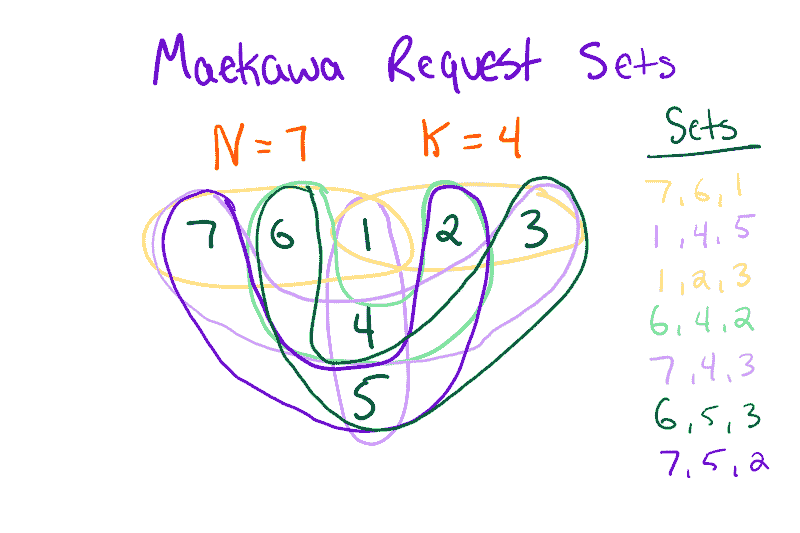 Maekawa Request Sets
N = 7 K = 4
Sets
7 6 1 2 3
4
5
7, 6, 1
1, 4, 5
1, 2, 3
6, 4, 2
7, 4, 3
6, 5, 3
7, 5, 2